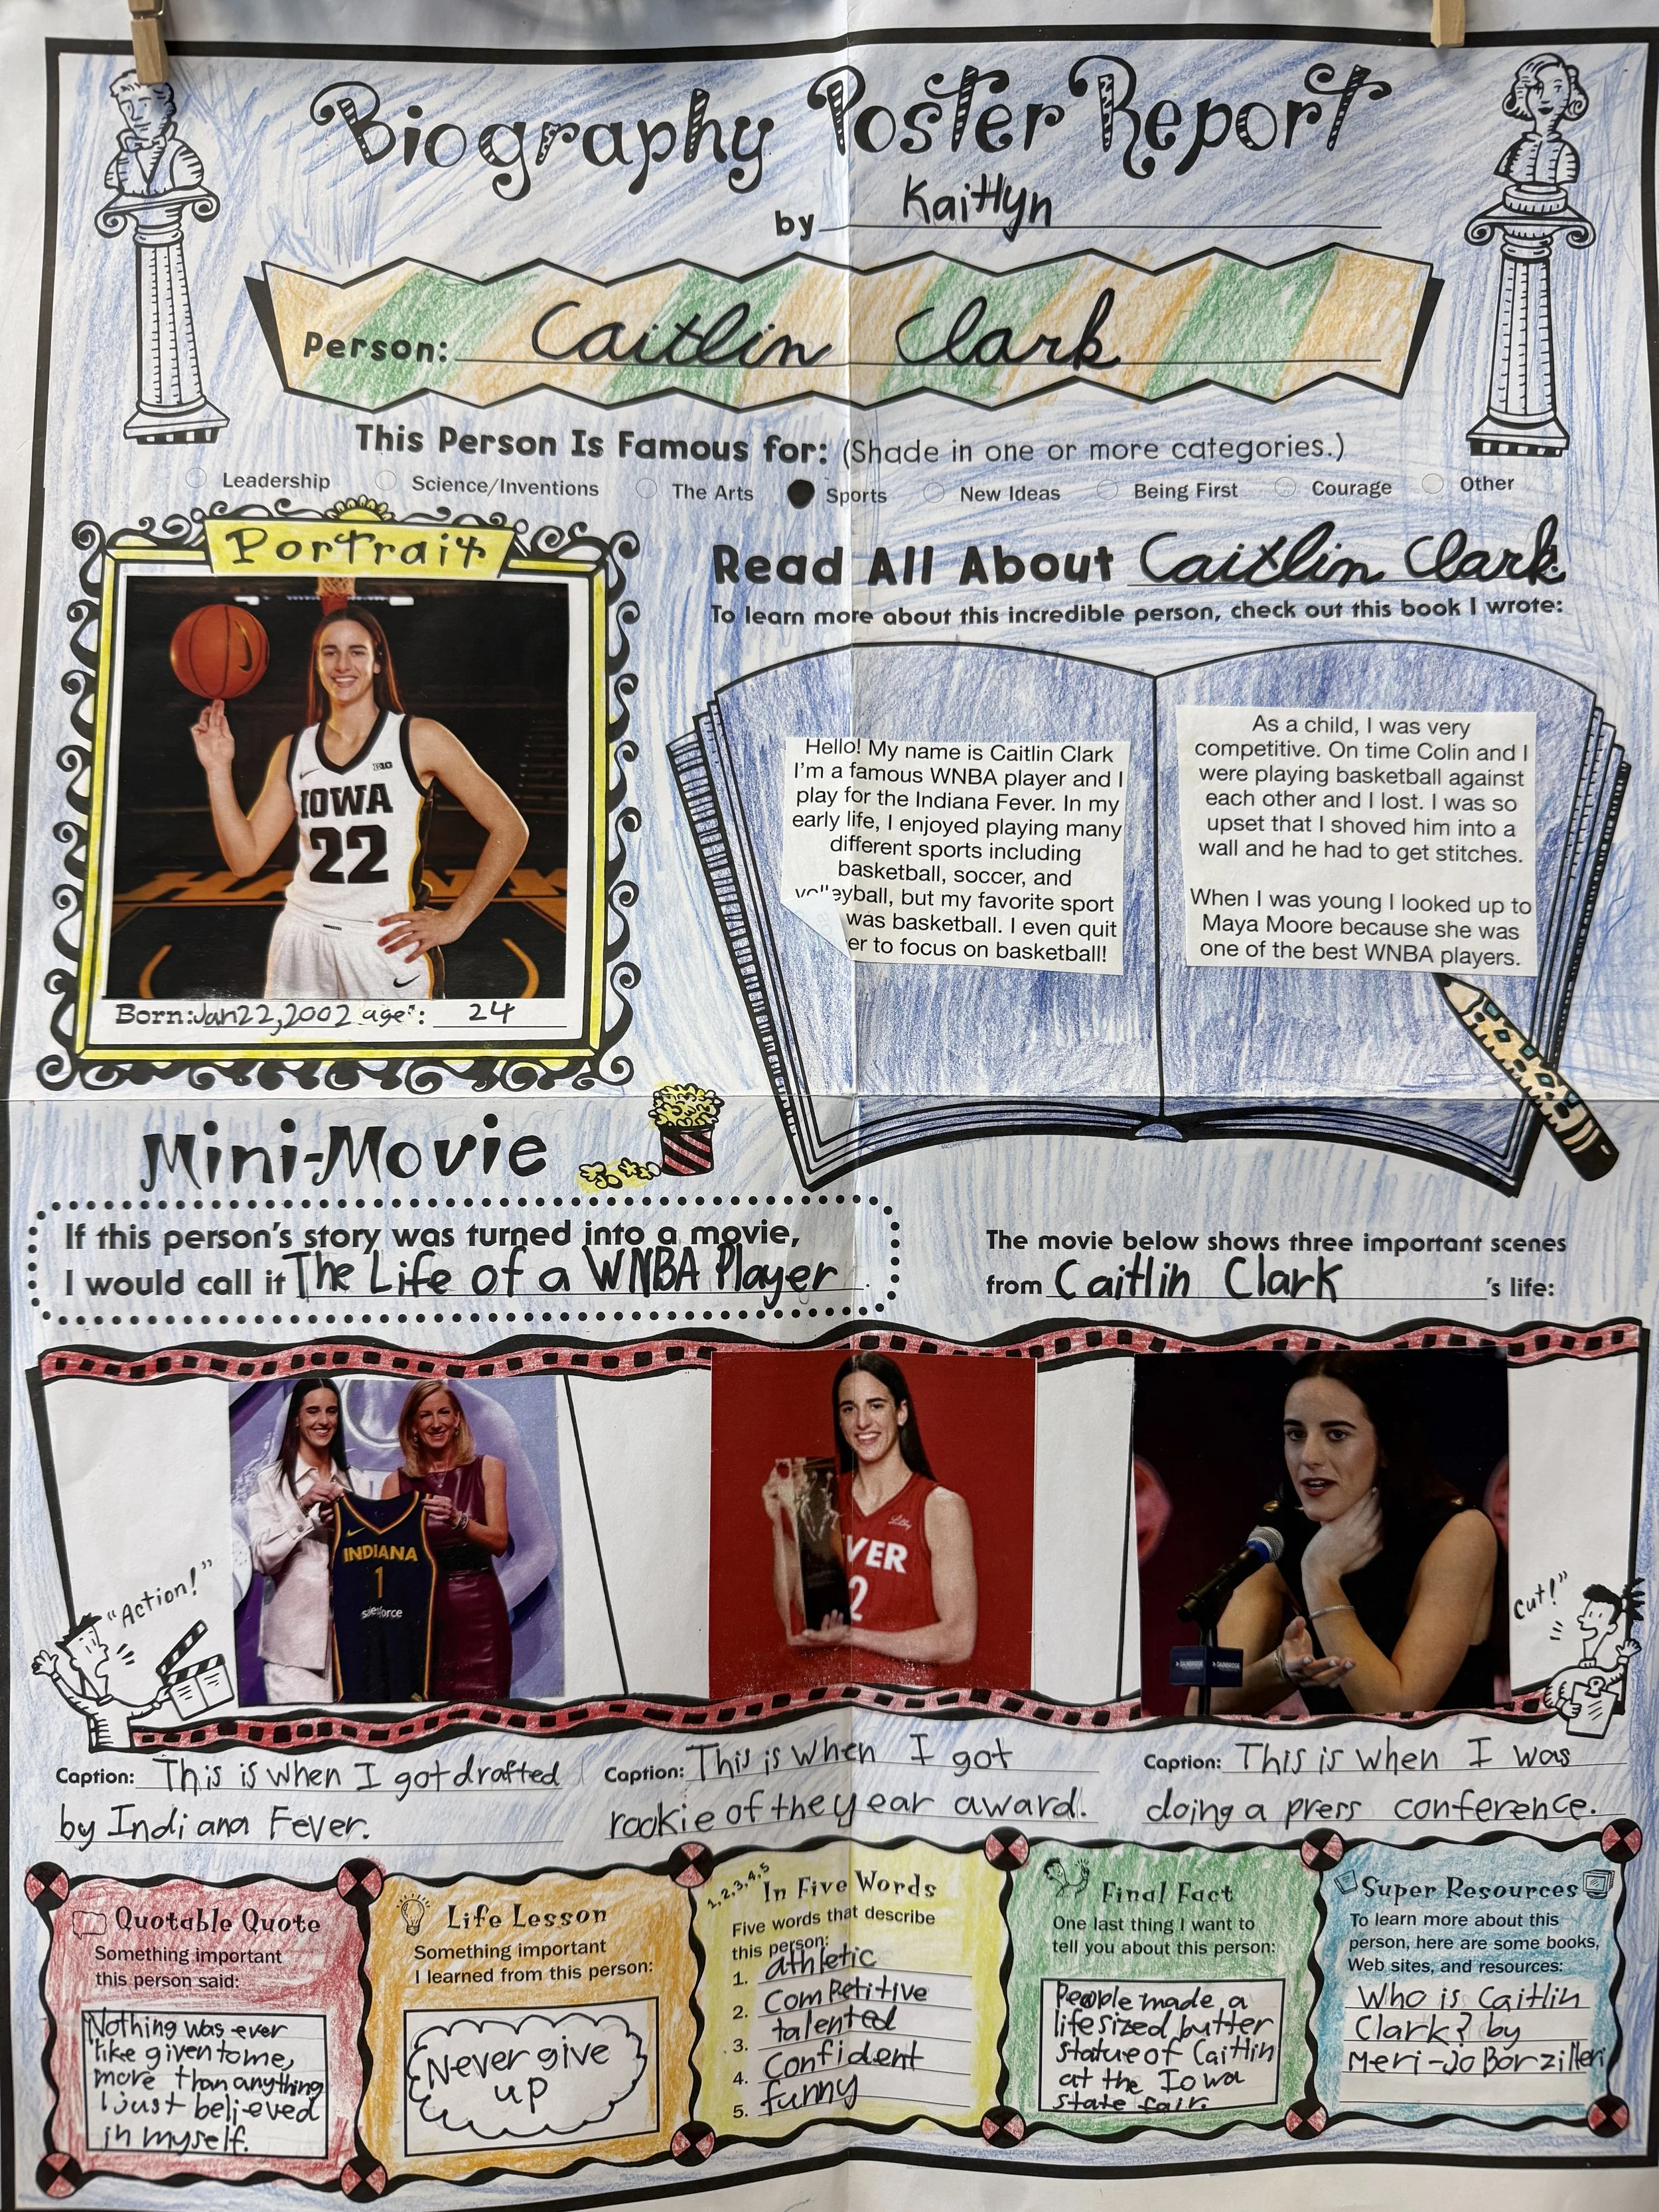 Biography Poster Report
by Kaitlyn
Person: Caitlin Clark
This Person Is Famous for: (Shade in one or more categories.)
Leadership Science/Inventions The Arts Sports New Ideas Being First Courage Other
Portrait
B1G
IOWA
22
Born: Jan 22, 2002 age: 24
Read All About Caitlin Clark
To learn more about this incredible person, check out this book I wrote:
Hello! My name is Caitlin Clark
I'm a famous WNBA player and I
play for the Indiana Fever. In my
early life, I enjoyed playing many
different sports including
basketball, soccer, and
volleyball, but my favorite sport
was basketball. I even quit
er to focus on basketball!
As a child, I was very
competitive. On time Colin and I
were playing basketball against
each other and I lost. I was so
upset that I shoved him into a
wall and he had to get stitches.
When I was young I looked up to
Maya Moore because she was
one of the best WNBA players.
Mini-Movie
If this person's story was turned into a movie,
I would call it The Life of a WNBA Player.
The movie below shows three important scenes
from Caitlin Clark 's life:
"Action!"
INDIANA
1
salesforce
Lilly
VER
2
BAINBRIDGE BAINBRIDGE
Cut!"
Caption: This is when I got drafted
by Indiana Fever.
Caption: This is when I got
rookie of the year award.
Caption: This is when I was
doing a press conference.
Quotable Quote
Something important
this person said:
Nothing was ever
like given to me,
more than anything
I just believed
in myself.
Life Lesson
Something important
I learned from this person:
Never give
up
1, 2, 3, 4, 5
In Five Words
Five words that describe
this person:
1. athletic
2. competitive
3. talented
4. confident
5. funny
Final Fact
One last thing I want to
tell you about this person:
People made a
life sized butter
statue of Caitlin
at the Iowa
state fair.
Super Resources
To learn more about this
person, here are some books,
Web sites, and resources:
Who is Caitlin
Clark? by
Meri-Jo Borzilleri